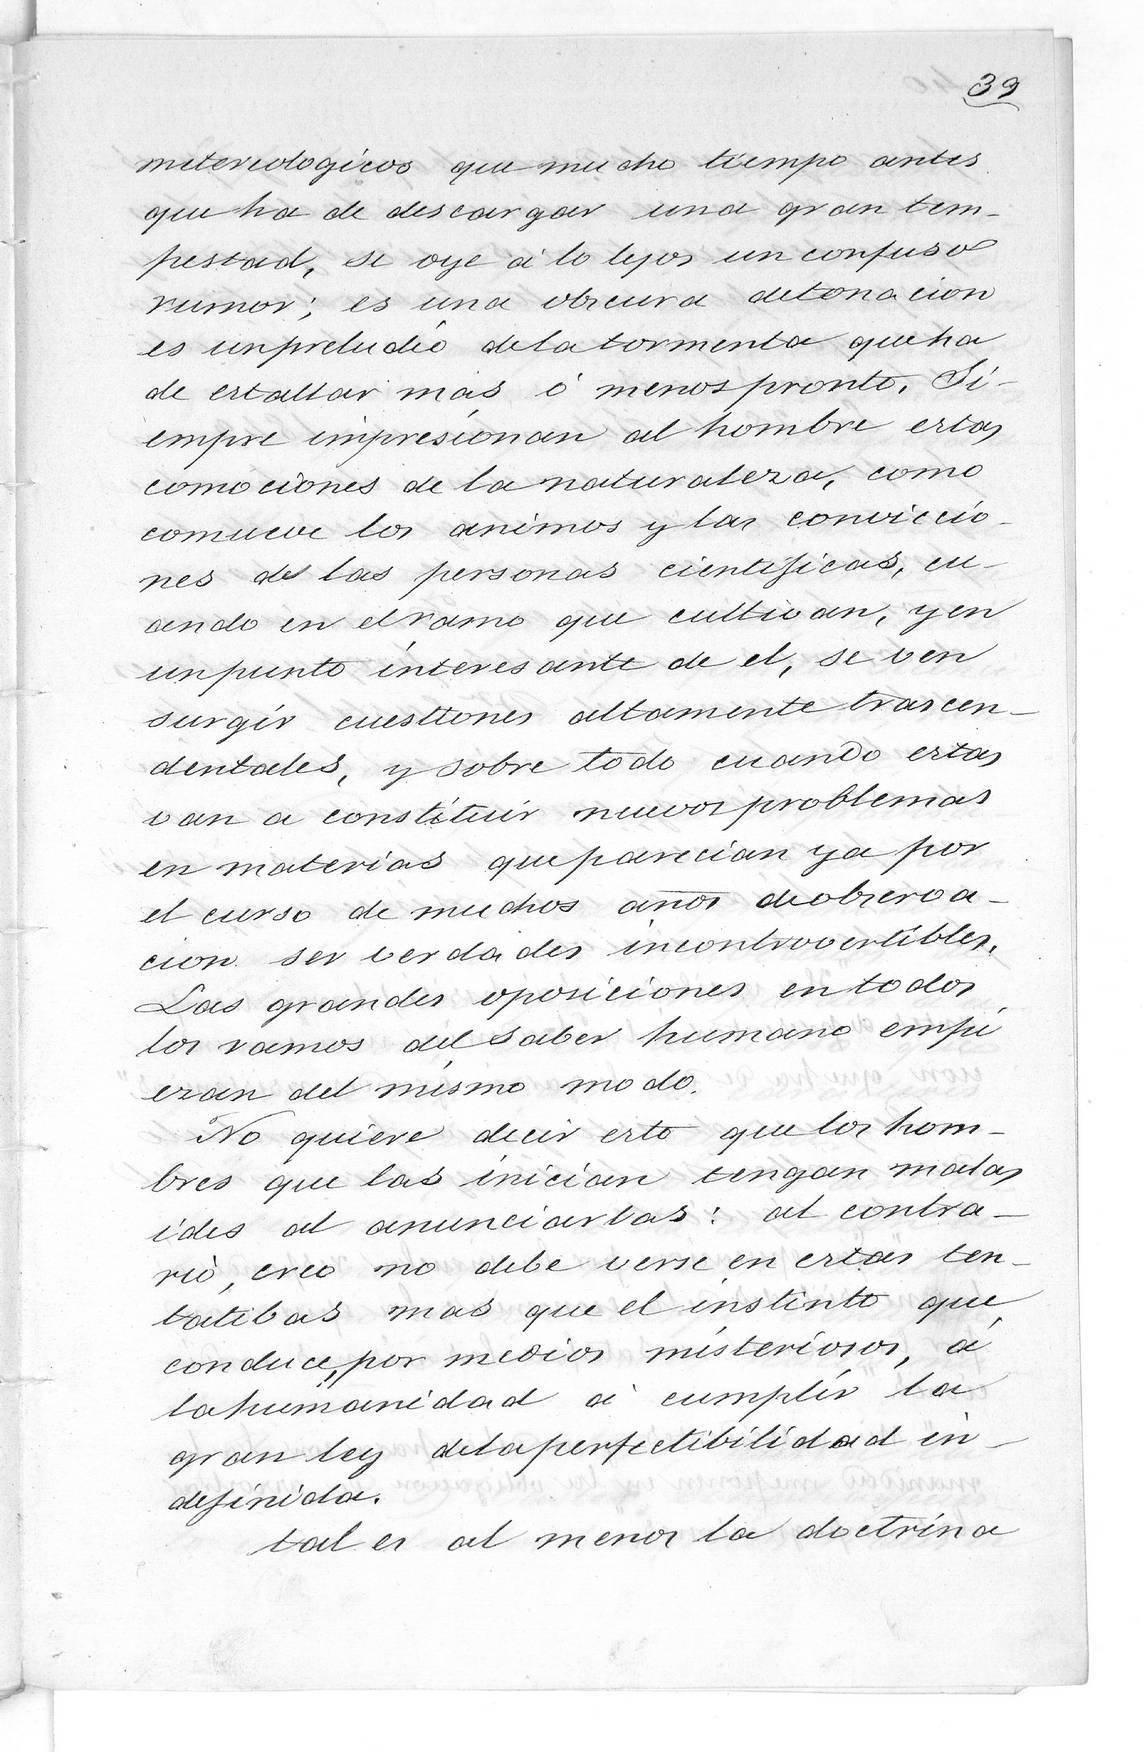 39
metereologicos que mucho tiempo antes
que ha de descargar una gran tem-
pestad, se oye á lo lejos un confuso
rumor; es una obscura detonacion
es un preludio de la tormenta que ha
de estallar mas ó menos pronto. Si-
empre impresionan al hombre estas
comociones de la naturaleza, como
comueve los animos y las conviccio-
nes de las personas cientificas, cu-
ando en el ramo que cultivan, y en
un punto interesante de el, se ven
surgir cuestiones altamente trascen-
dentales, y sobre todo cuando estas
van a constituir nuevos problemas
en materias que parecian ya por
el curso de muchos años de observa-
cion ser verdades incontrovertibles.
Las grandes oposiciones en todos
los ramos del saber humano empi
ezan del mismo modo.
No quiere decir esto que los hom-
bres que las inician tengan malas
ides al anunciarlas: al contra-
rio, creo no debe verse en estas ten-
tatibas mas que el instinto que
conduce, por medios misteriosos, á
la humanidad á cumplir la
gran ley de la perfectibilidad in-
definida.
tal es al menos la doctrina